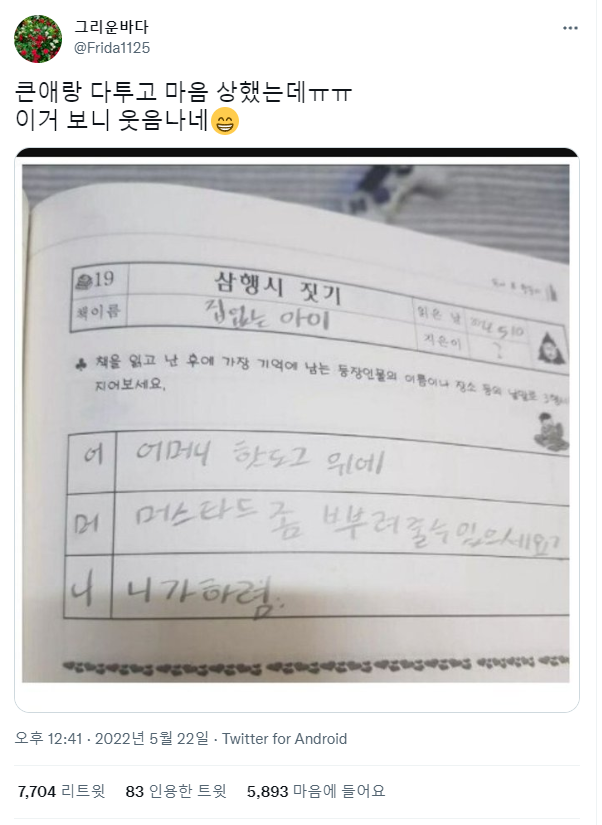 그리운바다
@Frida1125
큰애랑 다투고 마음 상했는데ㅠㅠ
이거 보니 웃음나네😁
19 삼행시 짓기
책이름 집없는 아이
읽은 날
지은이 ?
♣ 책을 읽고 난 후에 가장 기억에 남는 등장인물의 이름이나 장소 등의 낱말로
지어보세요.
어 어머니 핫도그 위에
머 머스타드 좀 뿌려줄수있으세요?
니 니가하렴.
오후 12:41 · 2022년 5월 22일 · Twitter for Android
7,704 리트윗 83 인용한 트윗 5,893 마음에 들어요